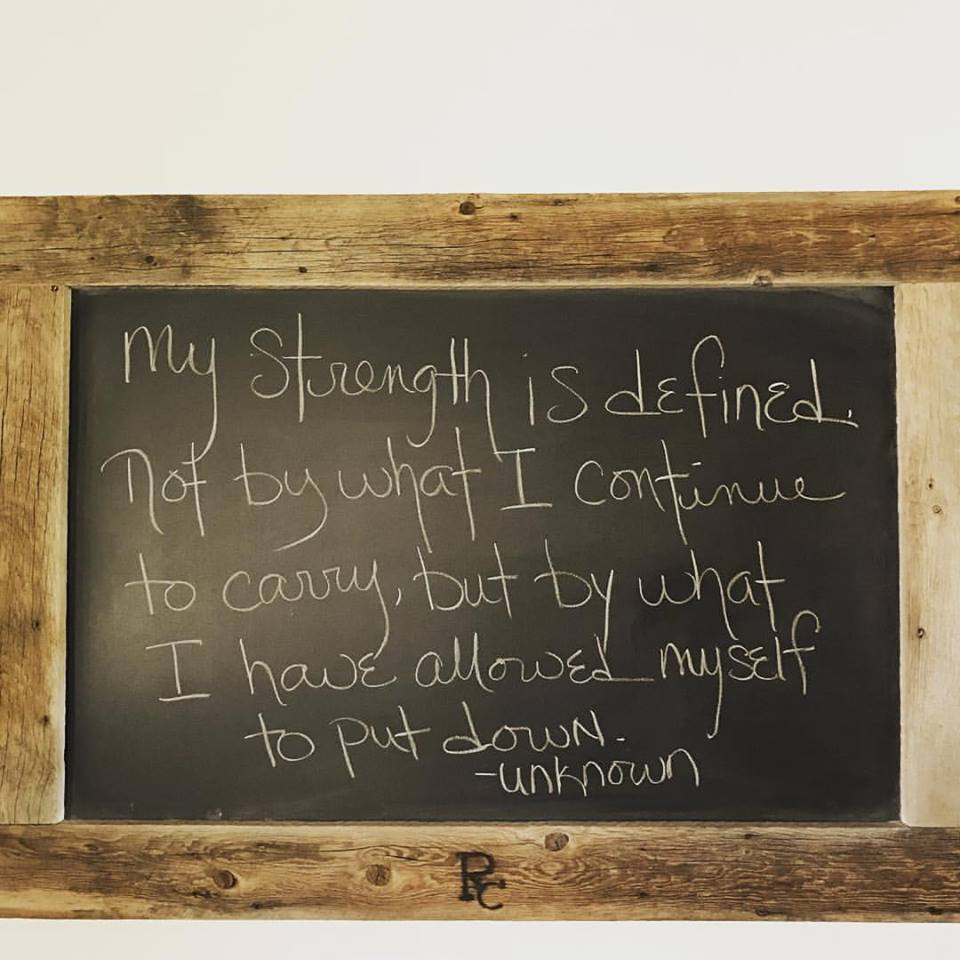 My Strength is defined.
Not by what I continue
to carry, but by what
I have allowed myself
to put down.
-unknown
RC